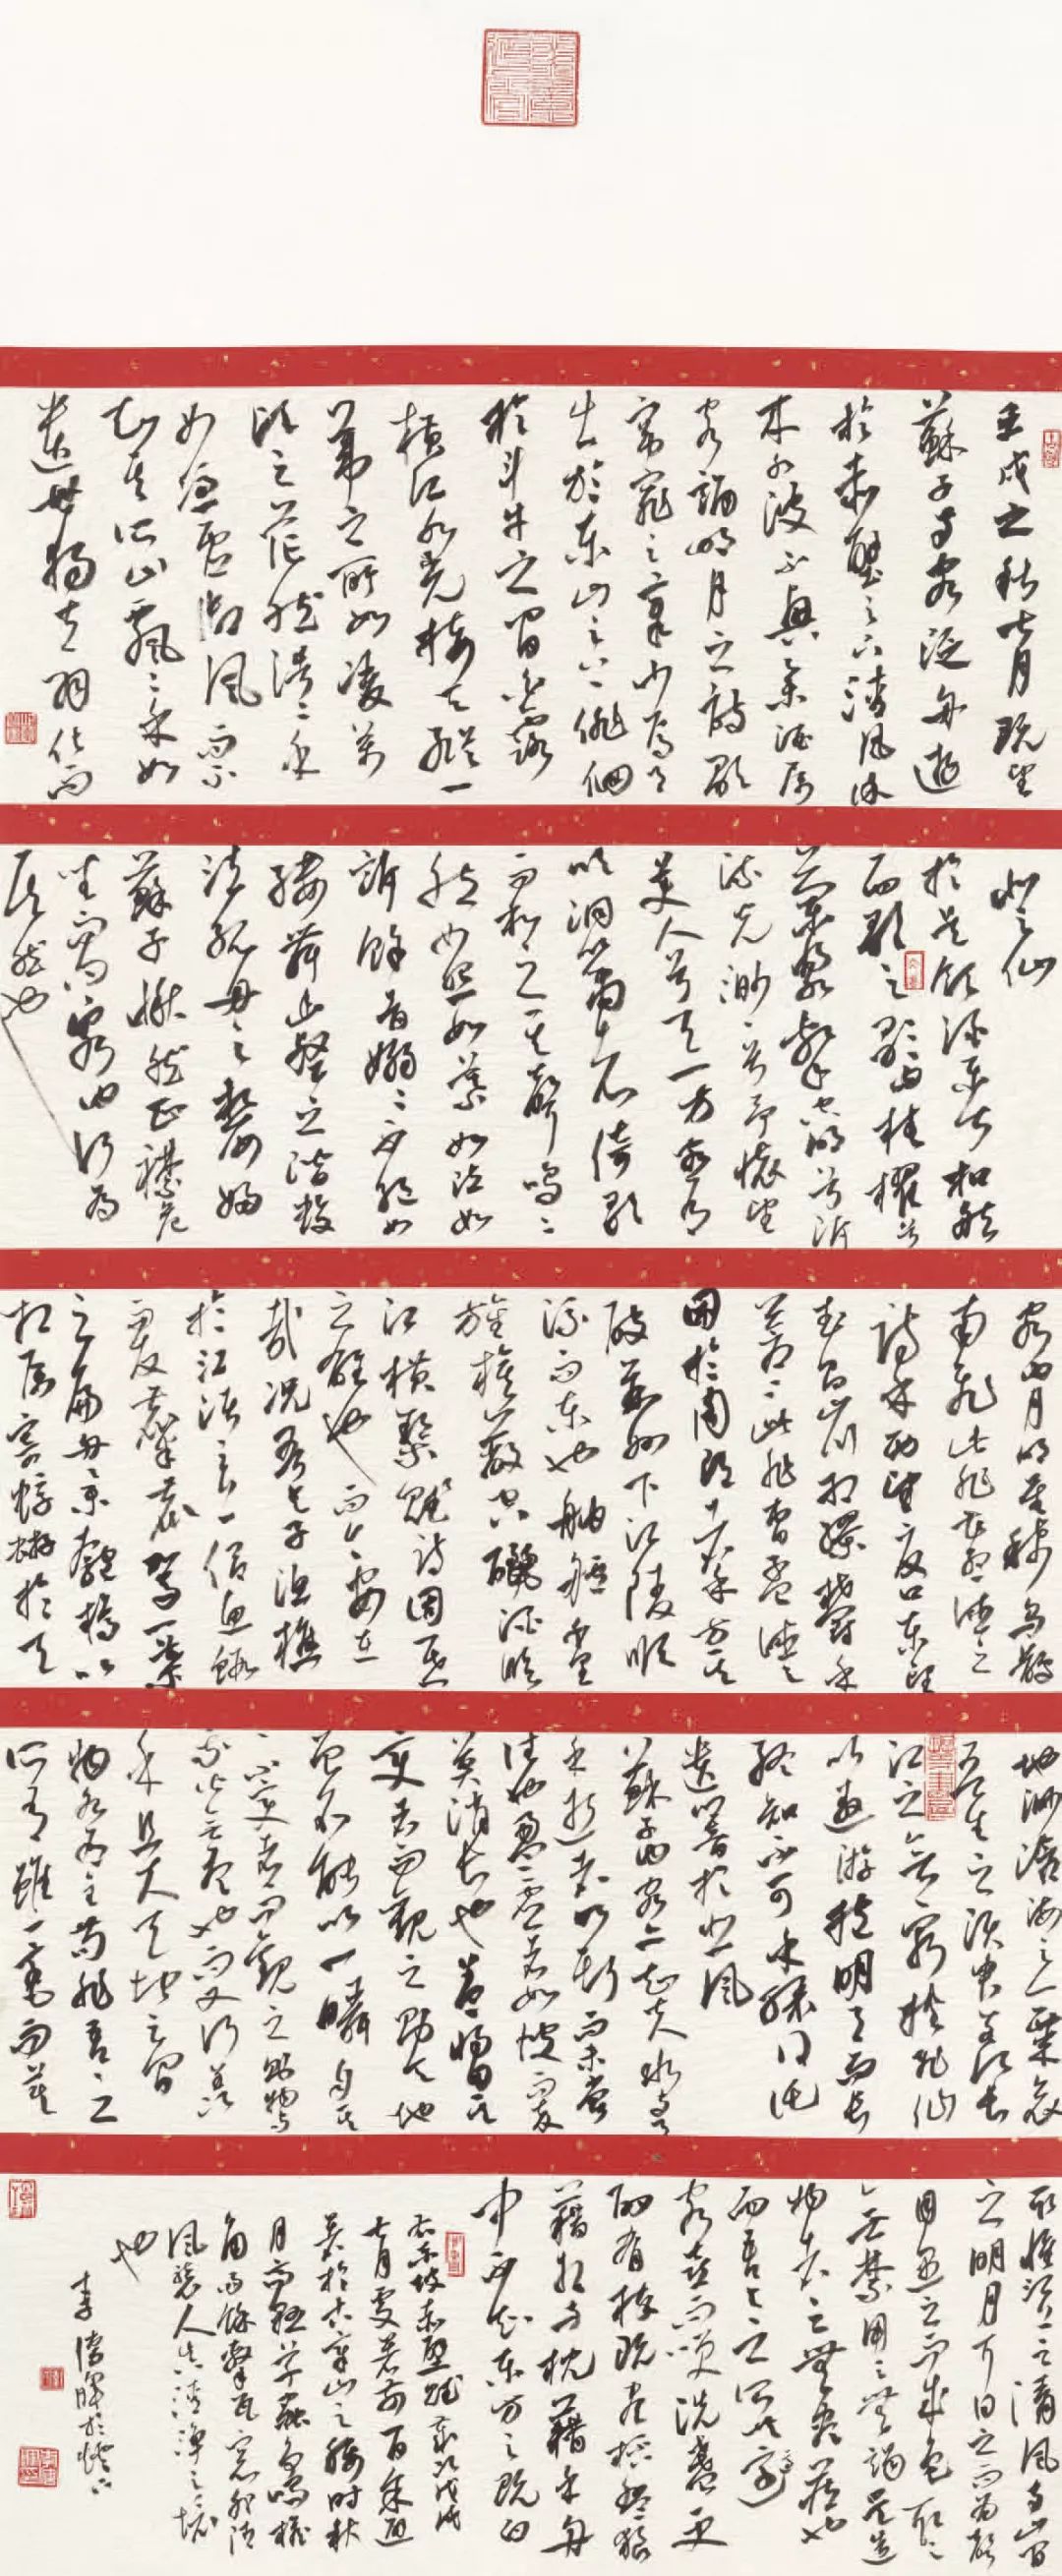 壬戌之秋七月既望
蘇子與客泛舟遊
於赤壁之下清風徐
來水波不興舉酒屬
客誦明月之詩歌
窈窕之章少焉月
出於東山之上徘徊
於斗牛之間白露
橫江水光接天縱一
葦之所如凌萬
頃之茫然浩浩乎
如馮虛御風而不
知其所止飄飄乎如
遺世獨立羽化而
登仙
於是飲酒樂甚扣舷
而歌之歌曰桂櫂兮
蘭槳擊空明兮泝
流光渺渺兮予懷望
美人兮天一方客有
吹洞簫者倚歌
而和之其聲嗚嗚
然如怨如慕如泣如
訴餘音嫋嫋不絕如
縷舞幽壑之潛蛟
泣孤舟之嫠婦
蘇子愀然正襟危
坐而問客曰何為
其然也
客曰月明星稀烏鵲
南飛此非孟德之
詩乎西望夏口東望
武昌山川相繆鬱乎
蒼蒼此非曹孟德之
困於周郎者乎方其
破荊州下江陵順
流而東也舳艫千里
旌旗蔽空釃酒臨
江橫槊賦詩固一世
之雄也而今安在
哉況吾與子漁樵
於江渚之上侶魚蝦
而友麋鹿駕一葉
之扁舟舉匏樽以
相屬寄蜉蝣於天
地渺滄海之一粟哀
吾生之須臾羨長
江之無窮挾飛仙
以遨游抱明月而長
終知不可乎驟得託
遺響於悲風
蘇子曰客亦知夫水與
月乎逝者如斯而未嘗
往也盈虛者如彼而卒
莫消長也蓋將自其
變者而觀之則天地
曾不能以一瞬自其
不變者而觀之則物與
我皆無盡也而又何羨
乎且夫天地之間
物各有主苟非吾之
所有雖一毫而莫
取惟江上之清風與山間
之明月耳得之而為聲
目遇之而成色取之
無禁用之無竭是造
物者之無盡藏也
而吾與子之所共適
客喜而笑洗盞更
酌肴核既盡杯盤狼
藉相與枕藉乎舟
中不知東方之既白
右東坡赤壁賦歲次戊戌
七月
時秋
月高
風襲人
也
於燈下